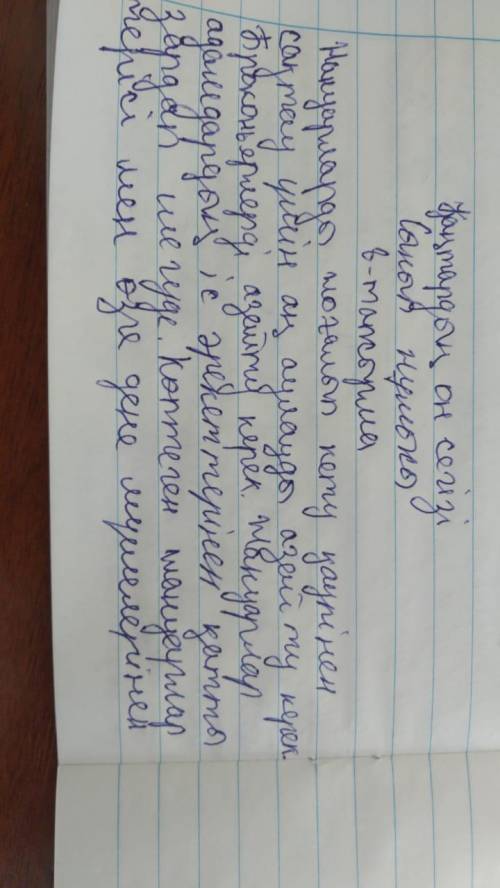 Қаңтардың он сегізі
Сынып жұмысы
6-тапсырма
Жануарларды жоғалып кету қаупінен
сақтау үшін аң аулауды азайту керек.
Броконьерлерді азайту керек. Жануарлар
адамдардың іс әрекеттерінен қатты
зардап шегуде. Көптеген жануарлар
терісі мен өзге дене мүшелерінен